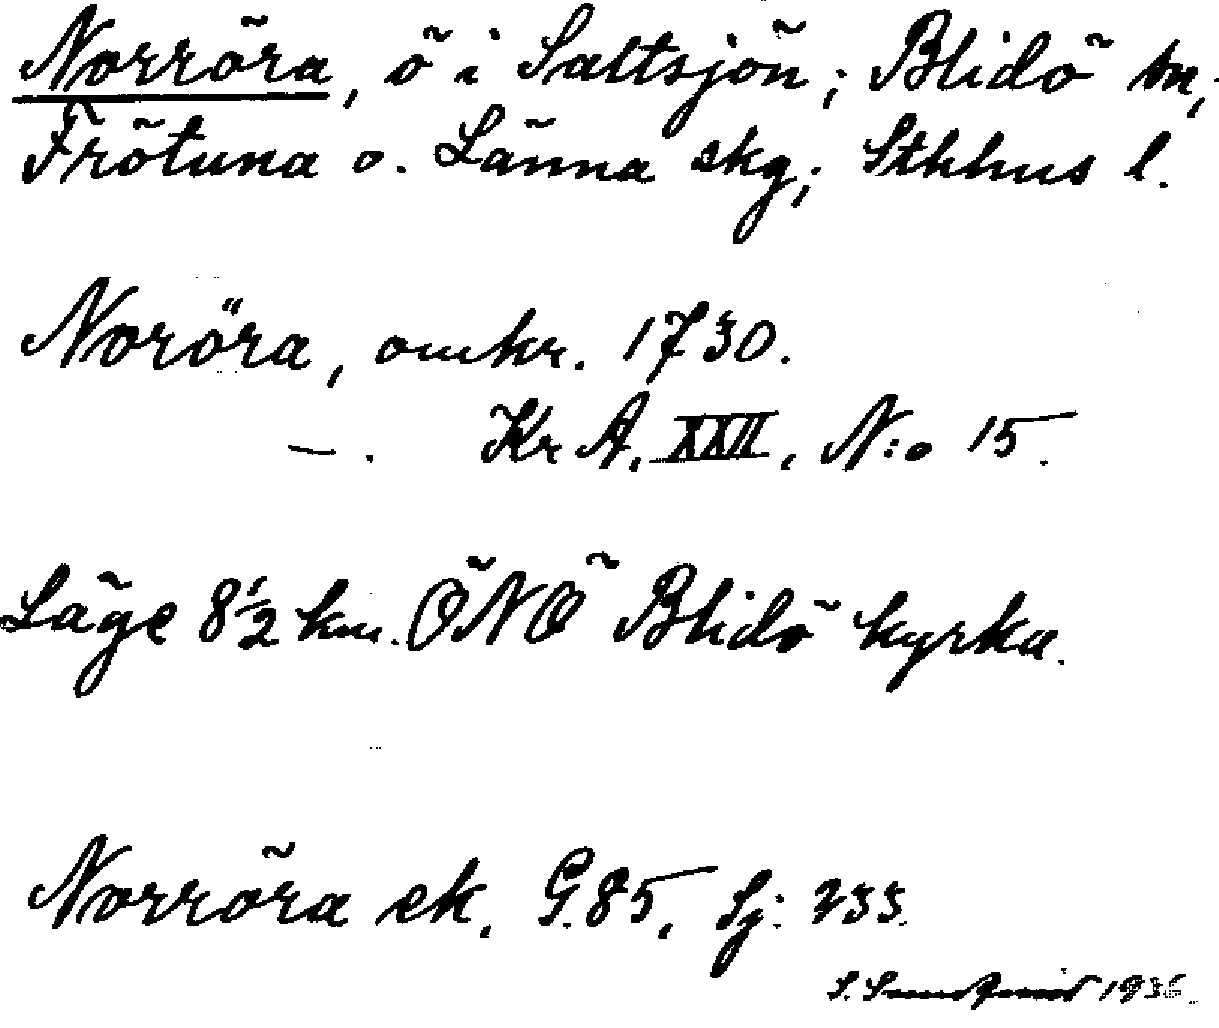 Norröra, ö i Saltsjön; Blidö sn,
Frötuna o. Länna skg; Sthhus l.
Noröra, omkr. 1730.
— . Kr A. XXII, N:o 15.
Läge 8 1/2 km. ÖNÖ Blidö kyrka.
Norröra ek. G. 85, Sj: 233.
S. Sundqvist 1936.